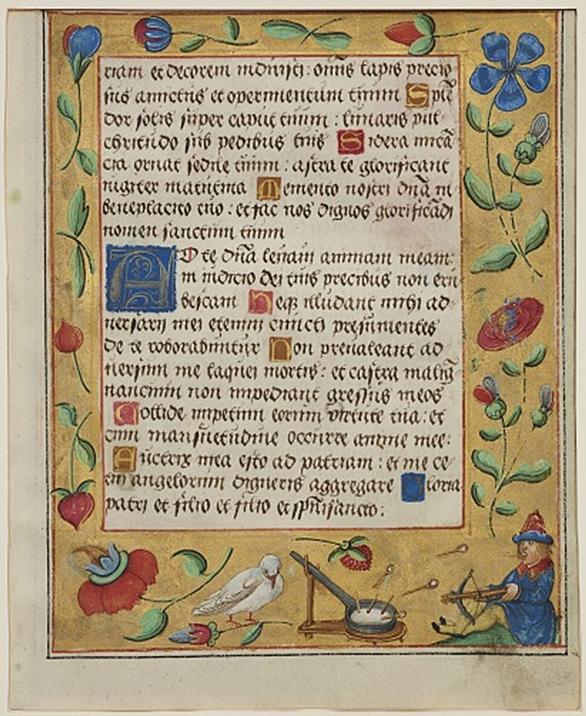 riam et decorem induisti: omnis lapis precio
sus amictus et operimentum tuum Splē
dor solis super caput tuum: lunaris pul
chritudo sub pedibus tuis Sidera mica
cia ornāt sedile tuum: astra te glorificant
iugiter matutina Memento nostri dn̄a in
beneplacito tuo: et fac nos dignos glorificādi
nomen sanctum tuum
AD te dn̄a levavi animam meam:
in iudicio dei tuis precibus non eru
bescam Neqʒ illudant mihi ad
versarij mei etenim cuncti presumentes
de te roborabuntur Non prevaleant ad
versum me laquei mortis: et castra malig
nancium non impediant gressus meos
Collide impetum eorum virtute tua: et
cum mansuetudine occurre anime mee:
Auctrix mea esto ad patriam: et me ce
tui angelorum digneris aggregare Gloria
patri et filio et filio et spūisancto: